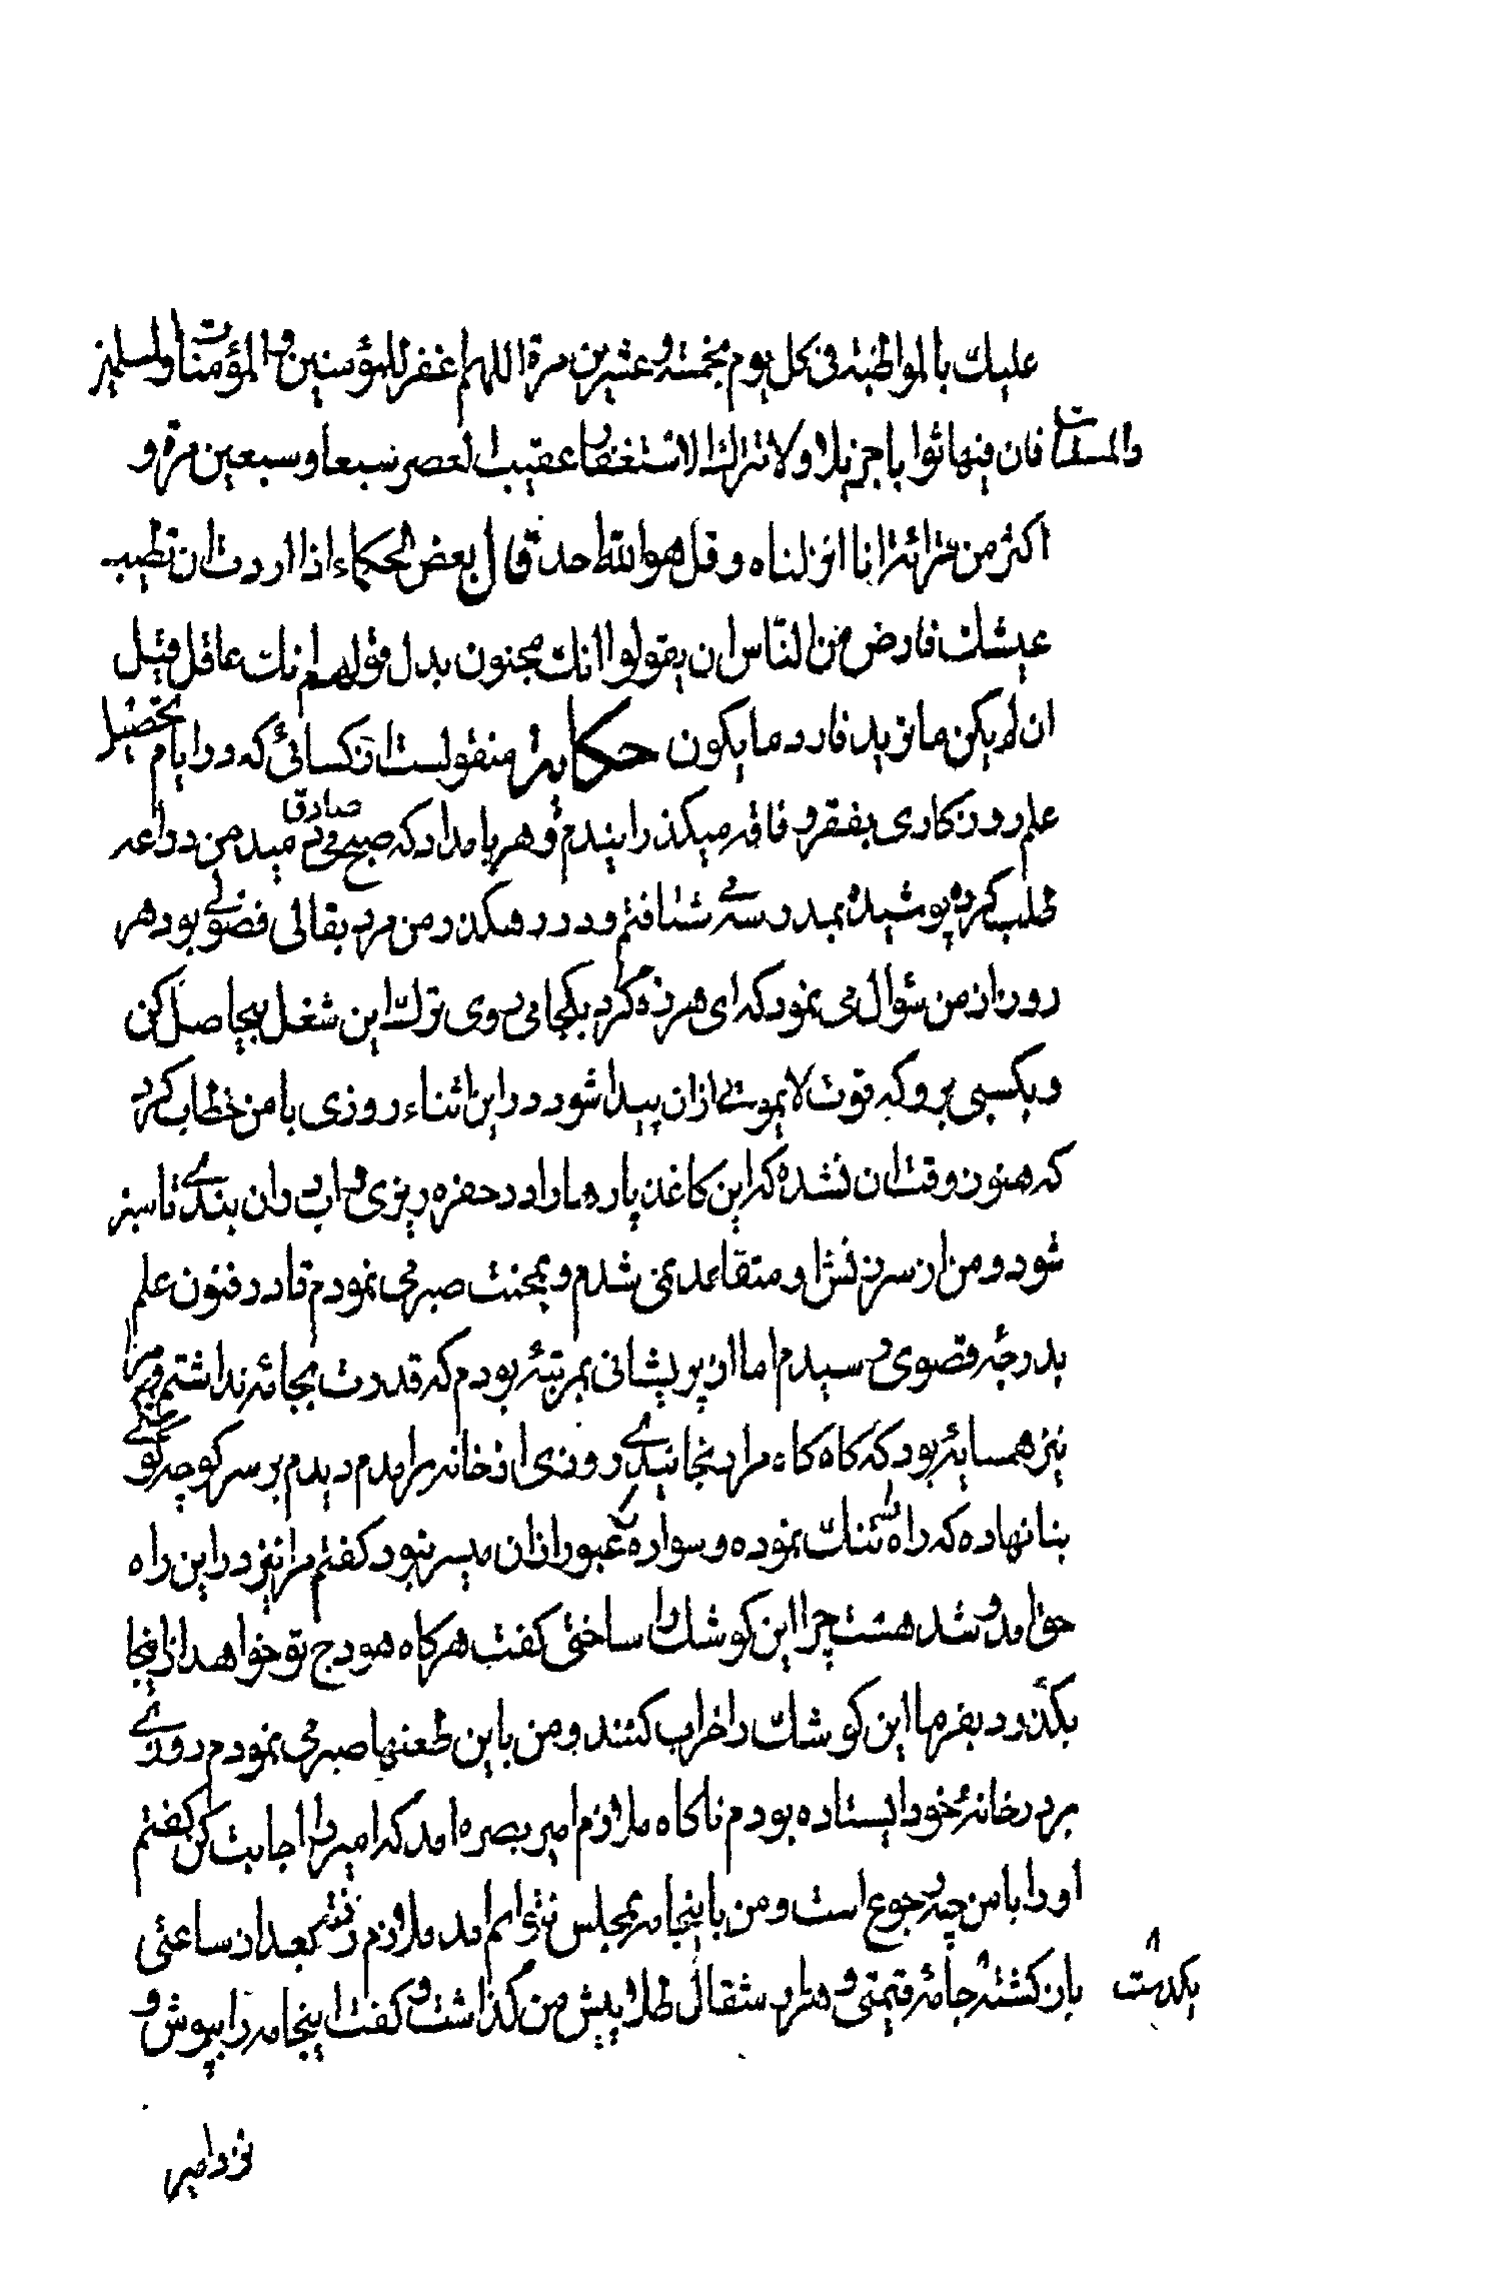 عليك بالمواظبة في كل يوم بخمسة وعشرين مرة اللهم اغفر للمؤمنين و المؤمنات والمسلمين
والمسلمات فان فيها ثوابا جزيلا ولا تترك الاستغفار عقيب العصر سبعا وسبعين مرة و
اكثر من قرائة انا انزلناه و قل هو الله احد قال بعض الحكماء اذا اردت ان تطيب
عيشك فارض من الناس ان يقولوا انك مجنون بدل قولهم انك عاقل قيل
ان لم يكن ما تريد فارد ما يكون حكاية منقولست از كسائى كه در ايام تحصيل
علم روزكارى بفقر و فاقه ميكذرانيدم و هر بامداد كه صبح صادق ميدميد من دراعه
طلب كرده پوشيده بمدرسه شتافتم و در رهكذر من مرد بقالى فضولى بود هر
روز از من سؤال مى نمود كه اى هرزه كرد بكجا مى روى ترك اين شغل بيحاصل كن
و بكسبى برو كه قوت لايموتى ازان پيدا شود در اين اثناء روزى با من خطاب كرد
كه هنوز وقت ان نشده كه اين كاغذ پاره ها را در حفره ريزى و اب در ان بندى تا سبز
شود و من از سرزنش او متقاعد نمى شدم و بمحنت صبر مى نمودم تا در فنون علم
بدرجه قصوى رسيدم اما از پريشانى بمرتبه بودم كه قدرت بجامه نداشتم و مرا
نيز همسايه بود كه كاه كاه مرا رنجانيدى روزى از خانه برامدم ديدم بر سر كوچه
بنا نهاده كه راه تنك نموده و سواره عبور ازان ميسر نبود كفتم مرا نيز در اين راه
حق امد و شد هست چرا اين كوشك را ساختى كفت هركاه هودج تو خواهد از اينجا
بكذرد بفرما اين كوشك را خراب كنند و من باين طعنها صبر مى نمودم روزى
بر در خانه خود ايستاده بودم ناكاه ملازم امير بصره امد كه امير را اجابت كن كفتم
او را با من چه رجوع است و من با اينجامه بمجلس نتوانم امد ملازم رفته بعد از ساعتى
باز كشته جامه قيمتى و هزار مثقال طلا پيش من كذاشت و كفت اينجامه را بپوش و
يكدست
نزد امير